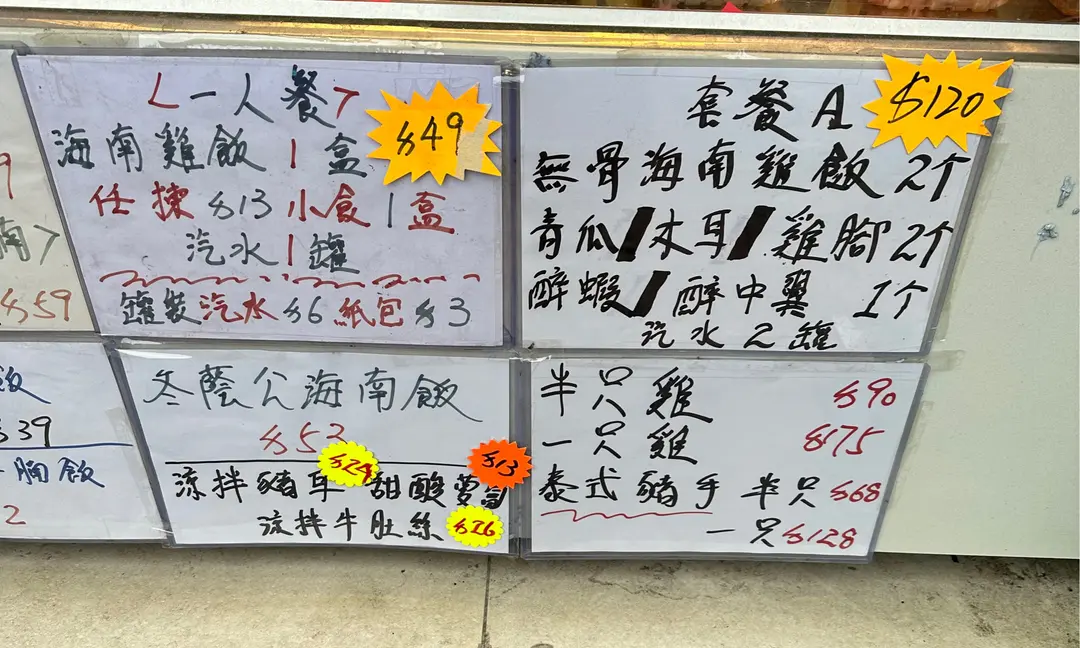 <一人餐>
$49
海南雞飯1盒
任揀$13小食1盒
汽水1罐
罐裝汽水$6紙包$3
套餐A
$120
無骨海南雞飯2个
青瓜/木耳/雞腳2个
醉蝦/醉中翼 1个
汽水2罐
南>
$59
飯
$39
腩飯
2
冬蔭公海南飯
$53
涼拌豬耳 $24 甜酸蕎 $13
涼拌牛肚絲 $26
半只雞 $90
一只雞 $175
泰式豬手 半只$68
一只$128